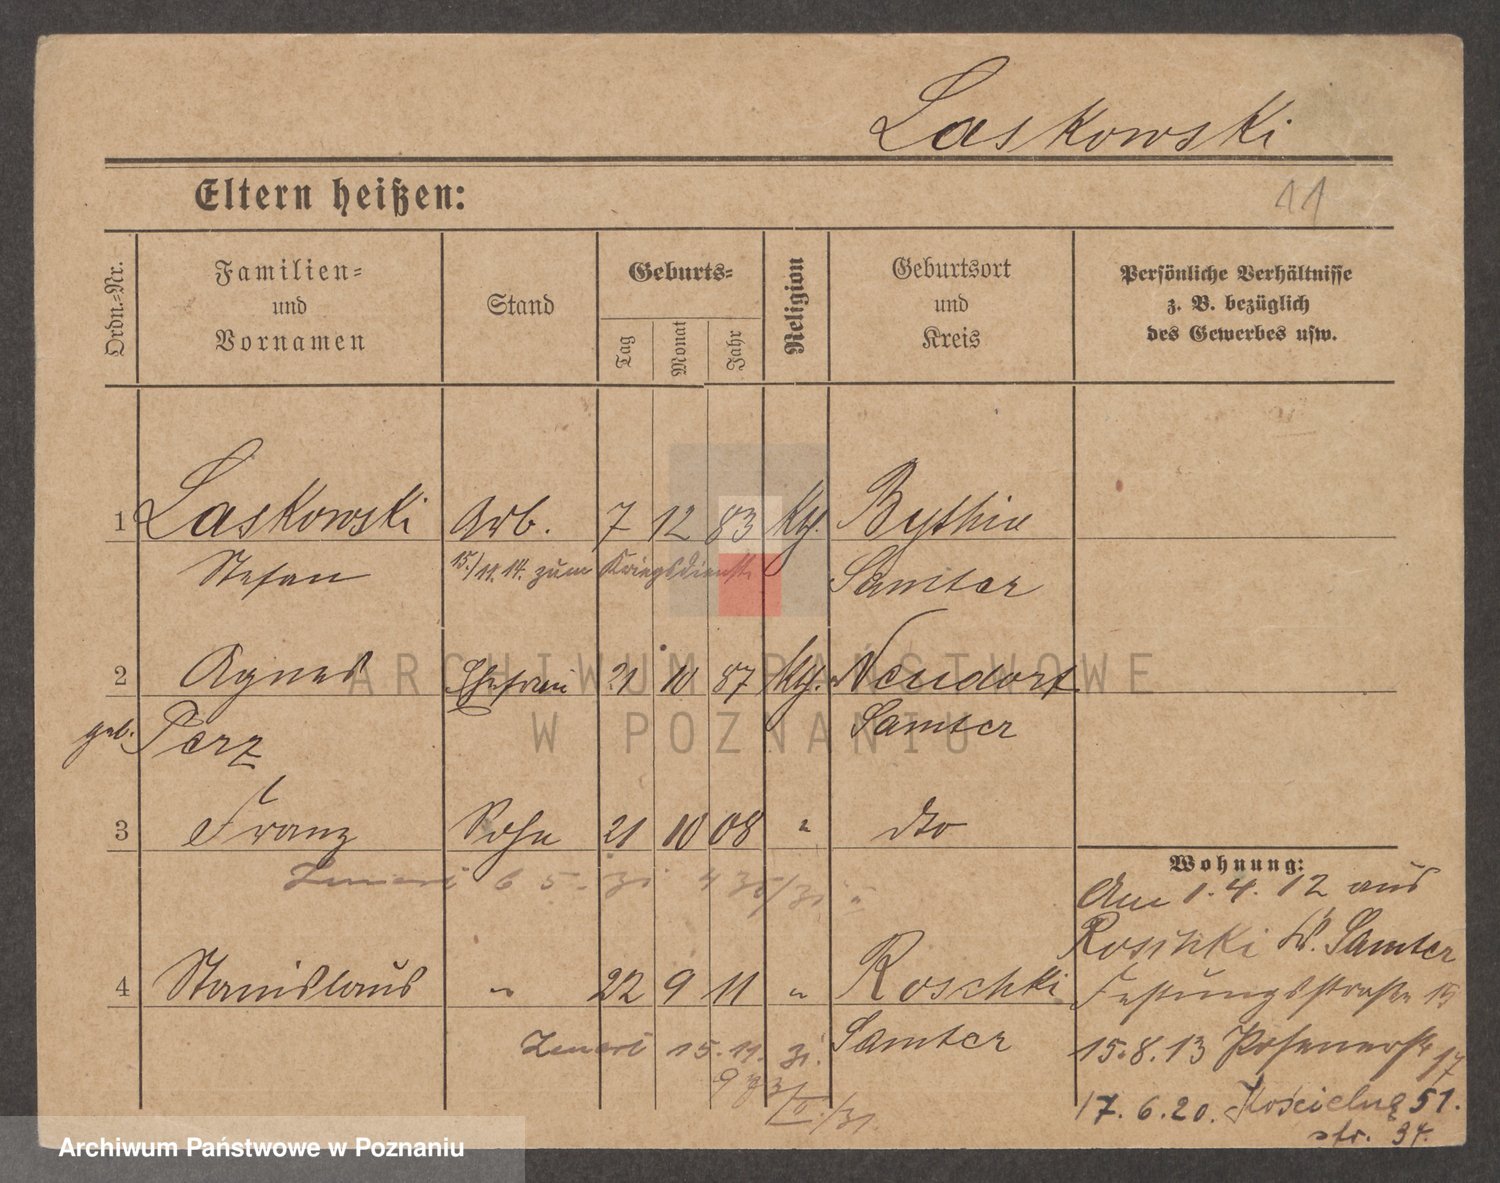 Laskowski
Eltern heißen:
11
Ordn.-Nr.
Familien-
und
Vornamen
Stand
Geburts-
Tag
Monat
Jahr
Religion
Geburtsort
und
Kreis
Persönliche Verhältnisse
z. B. bezüglich
des Gewerbes usw.
1 Laskowski Arb. 7 12 83 kth. Bythin
Stefan 15./11.14. zum Kriegsdienst Samter
2 Agnes Ehefrau 21 10 87 kth. Neudorf
geb. Perz Samter
3 Franz Sohn 21 10 08 " dto
Wohnung:
Am 1.4.12 aus
Roschki Kr. Samter
4 Stanislaus " 22 9 11 " Roschki
Festungsstraße 15
Samter
15.8.13 Posenerstr 17
17.6.20. Kościelną 51.
str. 34.
Zmarł 15.11.
ARCHIWUM PAŃSTWOWE
W POZNANIU
Archiwum Państwowe w Poznaniu